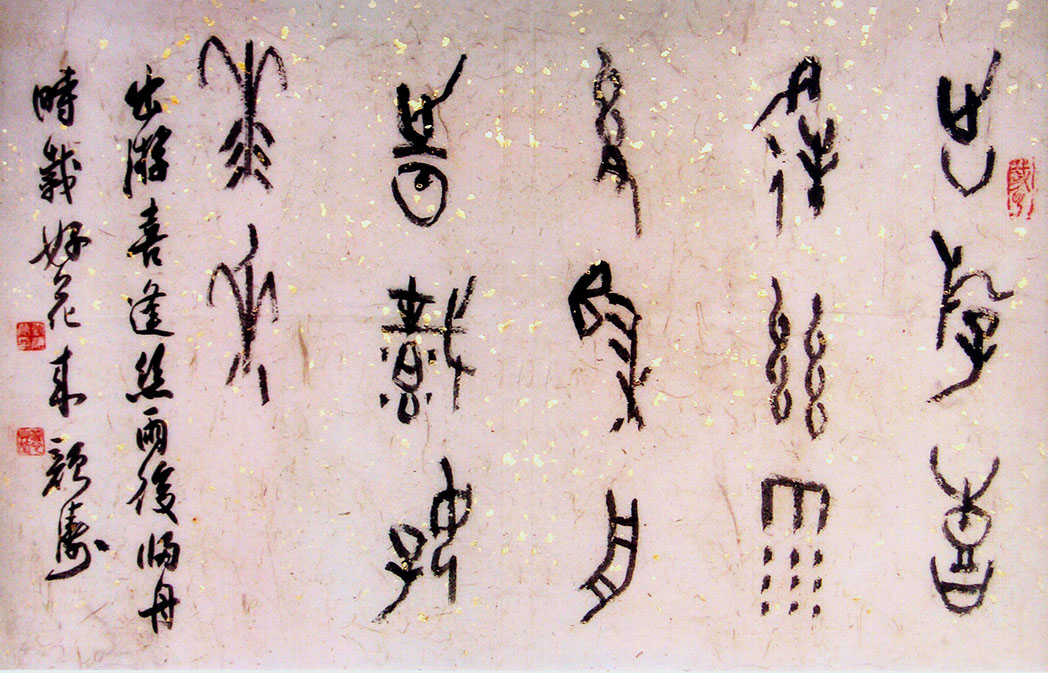 出游喜
逢絲雨
後歸舟
時載好
花来
出游喜逢絲雨後歸舟
時載好花来